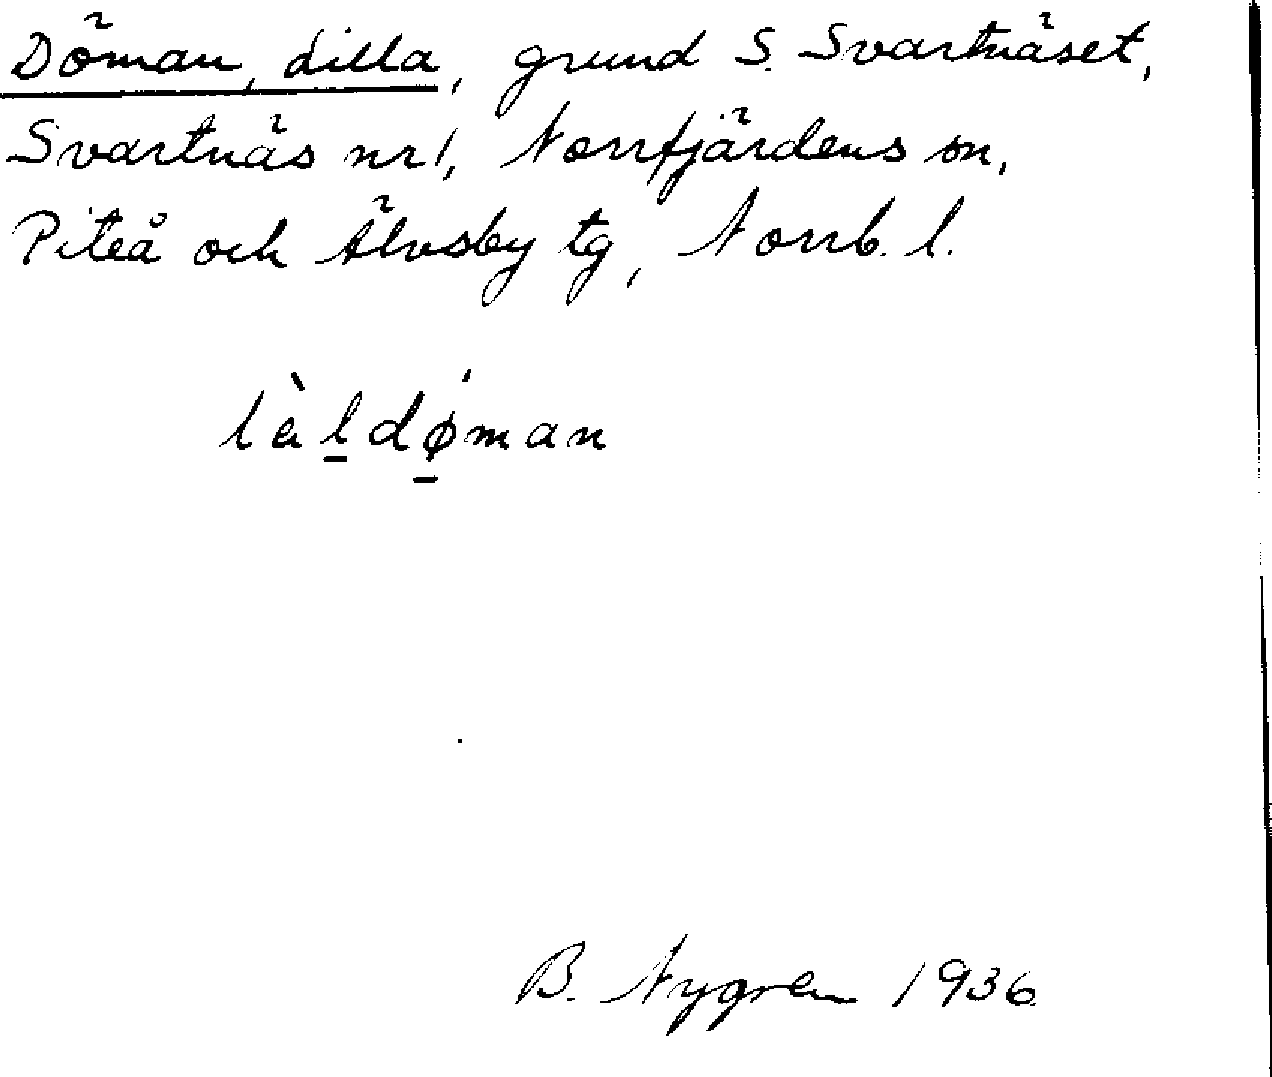 Döman, Lilla, grund S. Svartnäset,
Svartnäs nr 1, Norrfjärdens sn,
Piteå och Älvsby tg, Norrb. l.
lὰl̠dǿ̠man
B. Nygren 1936